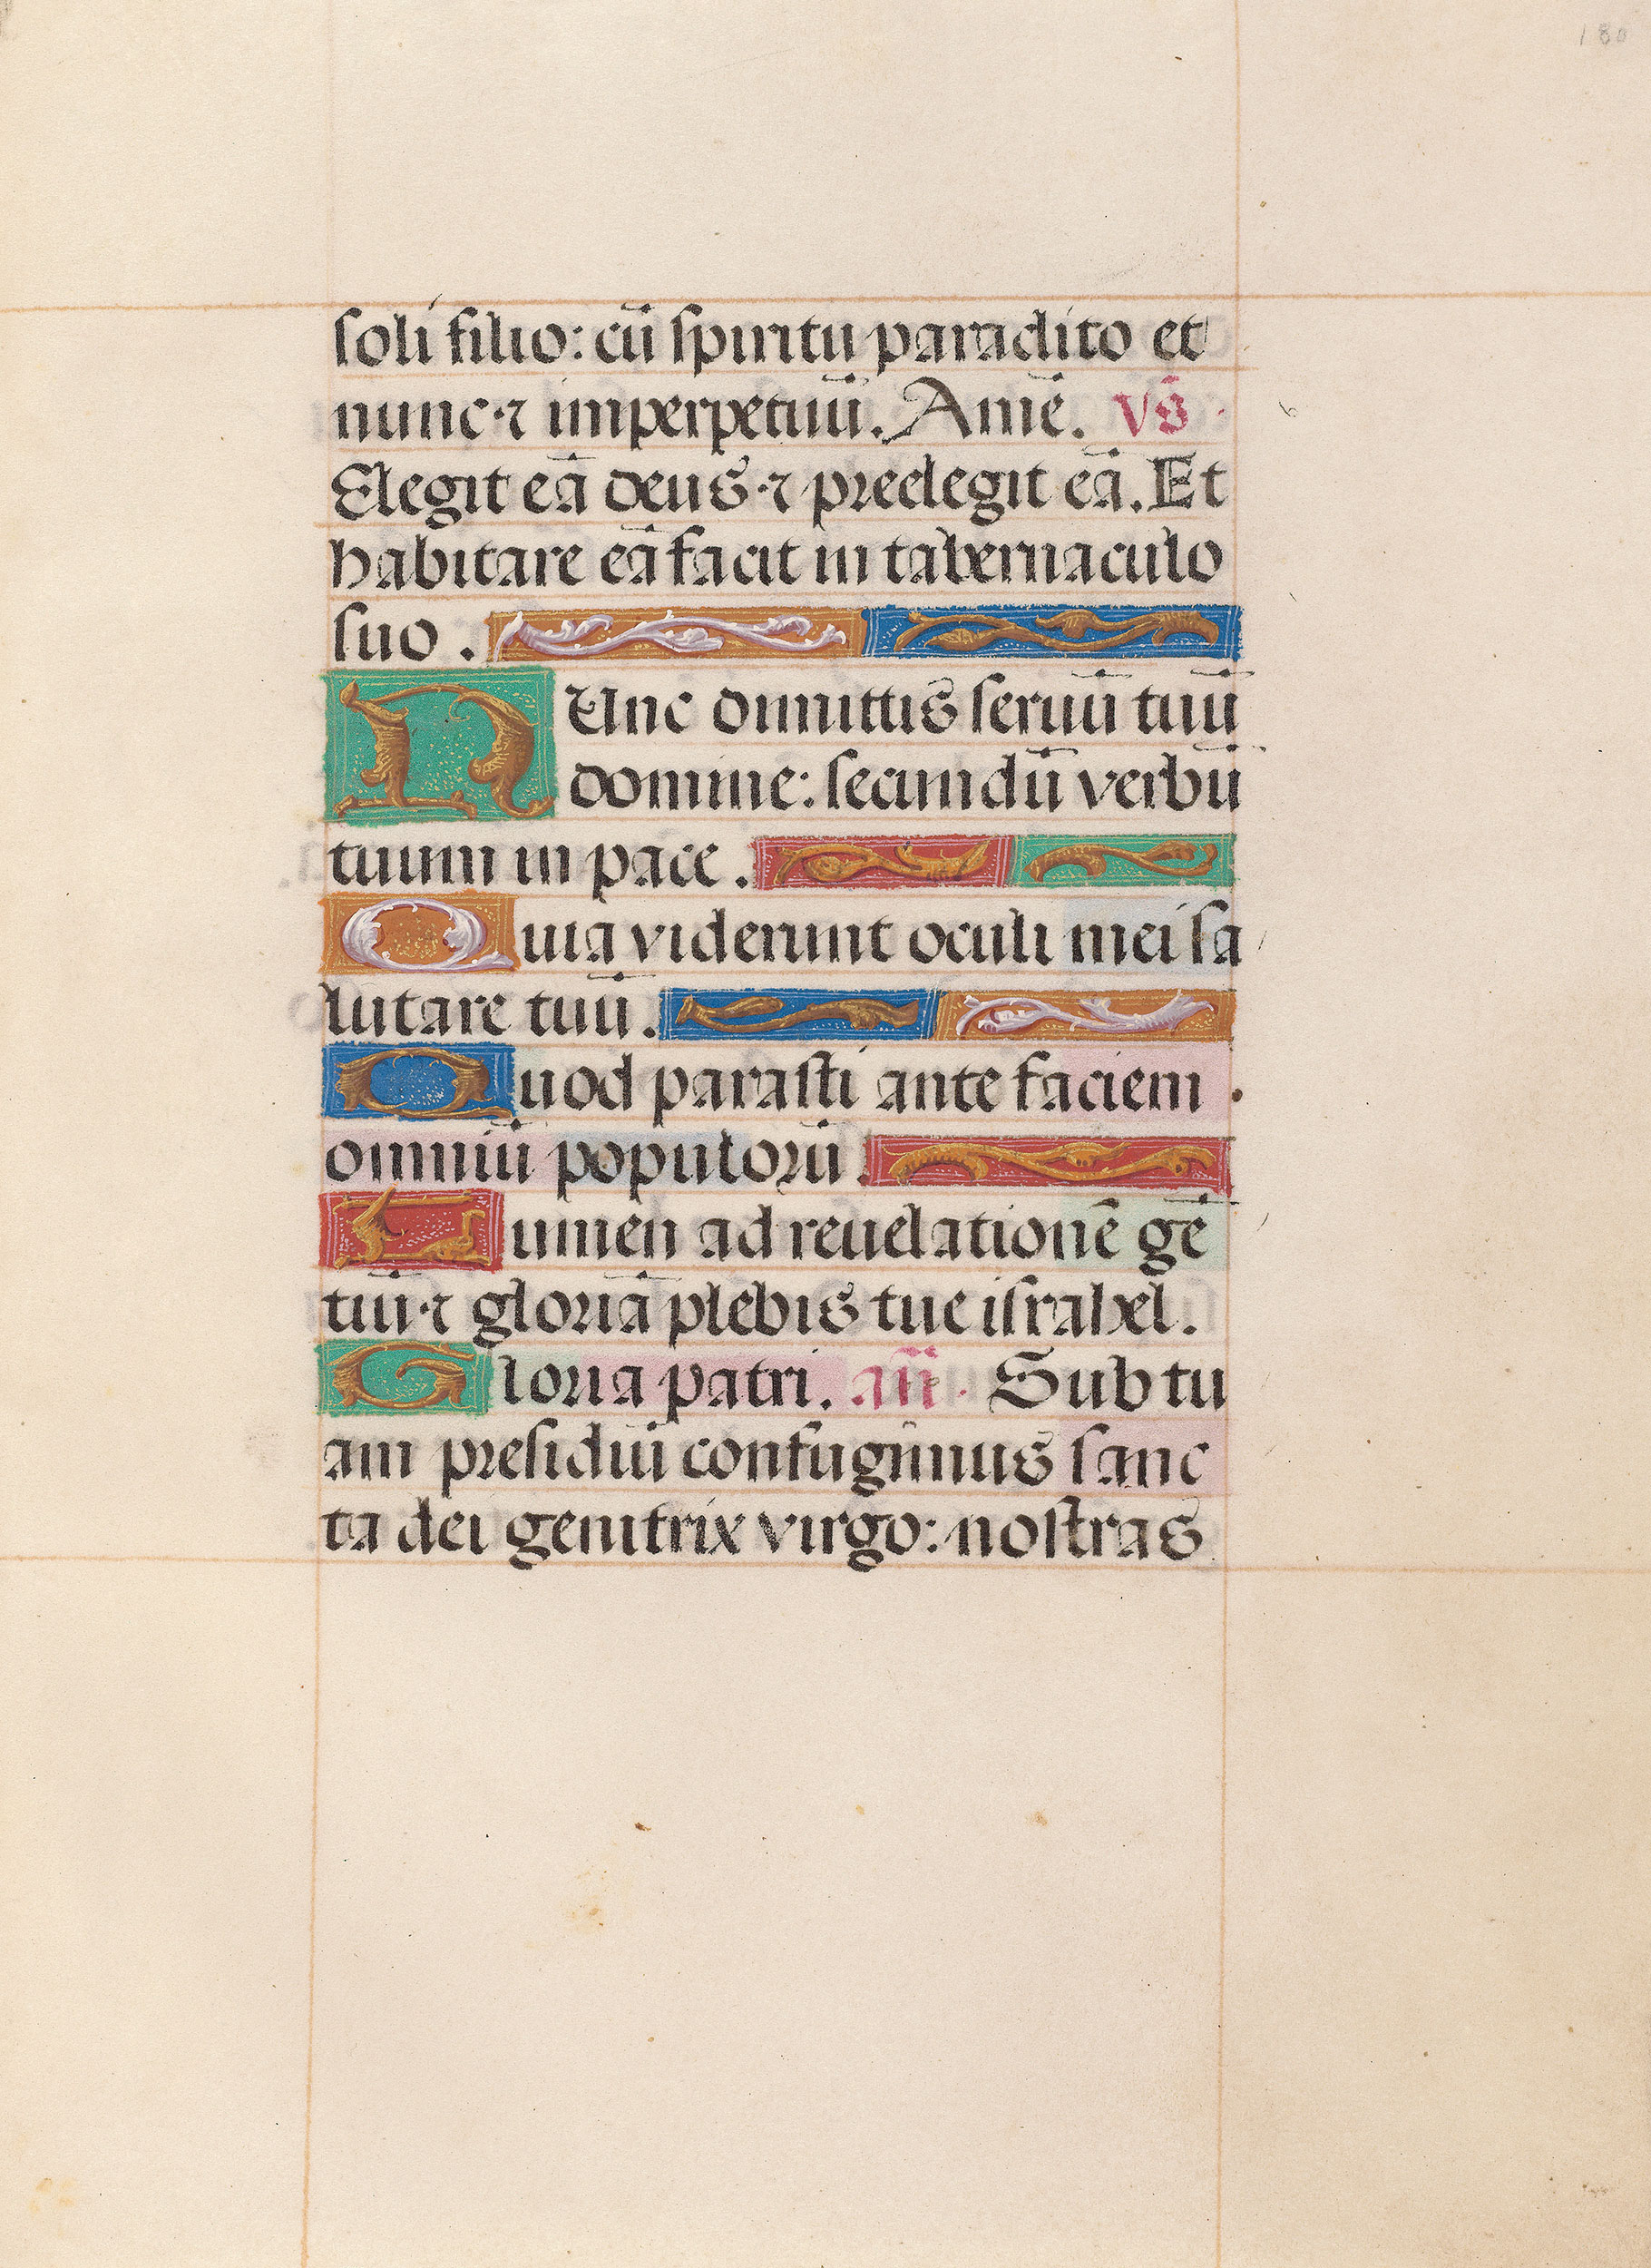 180
soli filio: cū spiritu paradito et
nunc ⁊ imperpetuū. Amē. vs̄
Elegit eā deus ⁊ preelegit eā. Et
habitare eā facit in tabernaculo
suo.
NUnc dimittis seruū tuū
domine: secundū verbū
tuum in pace.
Quia viderunt oculi mei sa
lutare tuū.
Quod parasti ante faciem
omniū populorū.
Lumen ad reuelationē gē
tiū ⁊ gloriā plebis tue israhel.
Gloria patri. añ. Sub tu
am presidiū confugimus sanc
ta dei genitrix virgo: nostras